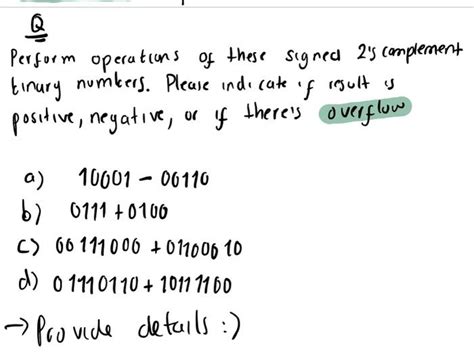 Q
Perform operations of these signed 2's complement
binary numbers. Please indicate if result is
positive, negative, or if there's overflow
a) 10001 - 00110
b) 0111 + 0100
c) 00111000 + 01100010
d) 01110110 + 10111100
→ Provide details :)